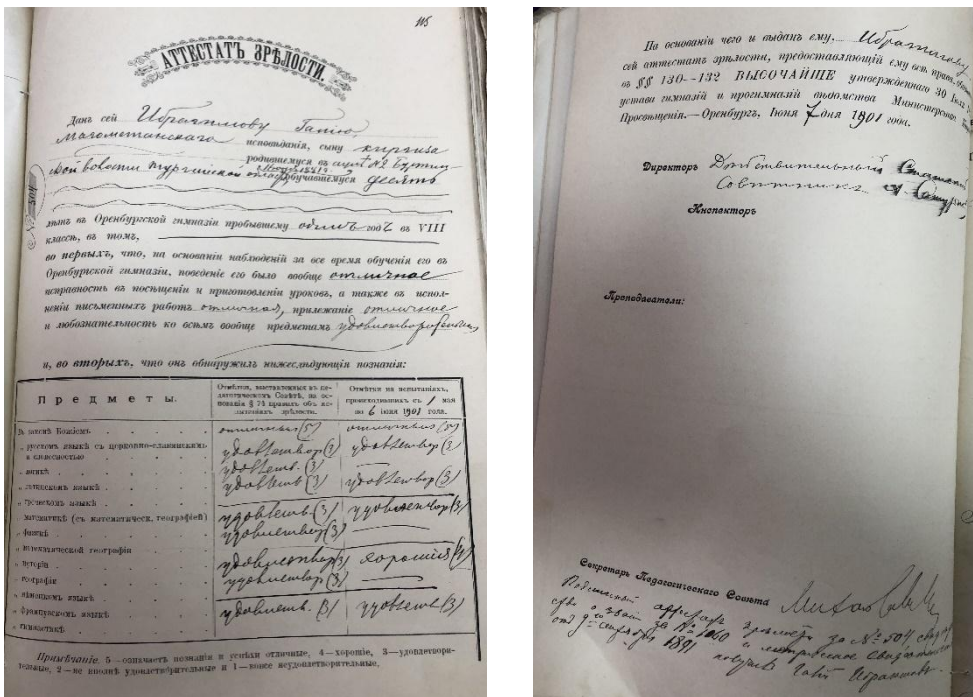 115
АТТЕСТАТЪ ЗРѢЛОСТИ.
Данъ сей Ибрагимову Гатію,
Магометанскаго исповѣданія, сыну киргиза
родившемуся въ аулѣ №2
волости Тургайской обл. обучавшемуся десять
№ 504
лѣтъ въ Оренбургской гимназіи пробывшему одинъ годъ въ VIII
классѣ, въ томъ,
во первыхъ, что, на основаніи наблюденій за все время обученія его въ
Оренбургской гимназіи, поведеніе его было вообще отличное
исправность въ посѣщеніи и приготовленіи уроковъ, а также въ испол-
неніи письменныхъ работъ отличная, прилежаніе отличное
и любознательность ко всѣмъ вообще предметамъ удовлетворительная
и, во вторыхъ, что онъ обнаружилъ нижеслѣдующія познанія:
Предметы.
Отмѣтки, выставленныя въ пе-
дагогическомъ Совѣтѣ, на ос-
нованіи § 74 правилъ объ ис-
пытаніяхъ зрѣлости.
Отмѣтки на испытаніяхъ,
происходившихъ съ 1 мая
по 6 іюня 1901 года.
Въ законѣ Божіемъ отличныя (5) отличныя (5)
„ русскомъ языкѣ съ церковно-славянскимъ
и словесностью удовлетвор (3) удовлетвор (3)
„ логикѣ удовлетв. (3)
„ латинскомъ языкѣ удовлетв (3) удовлетвор (3)
„ греческомъ языкѣ
„ математикѣ (съ математическ. географіей) удовлетв (3) удовлетвор (3)
„ физикѣ удовлетвор (3)
„ математической географіи
„ исторіи удовлетвор (3) хорошія (4)
„ географіи удовлетвор (3)
„ нѣмецкомъ языкѣ
„ французскомъ языкѣ удовлетв. (3) удовлетв (3)
„ гимнастикѣ
Примѣчаніе. 5 —означаетъ познанія и успѣхи отличные, 4—хорошіе, 3—удовлетвори-
тельные, 2—не вполнѣ удовлетворительные и 1—вовсе неудовлетворительные,
На основаніи чего и выданъ ему, Ибрагимову
сей аттестатъ зрѣлости, предоставляющій ему всѣ права,
въ §§ 130—132 ВЫСОЧАЙШЕ утвержденнаго 30 Іюля
устава гимназій и прогимназій вѣдомства Министерства
Просвѣщенія.—Оренбургъ, Іюня 7 дня 1901 года.
Директоръ Дѣйствительный Статскій
Совѣтникъ
Инспекторъ
Преподаватели:
Секретарь Педагогическаго Совѣта
Подлинный аттестатъ зрѣлости за № 504
за № 1060 и метрическое
отъ 9 1891 получилъ Гатій Ибрагимовъ